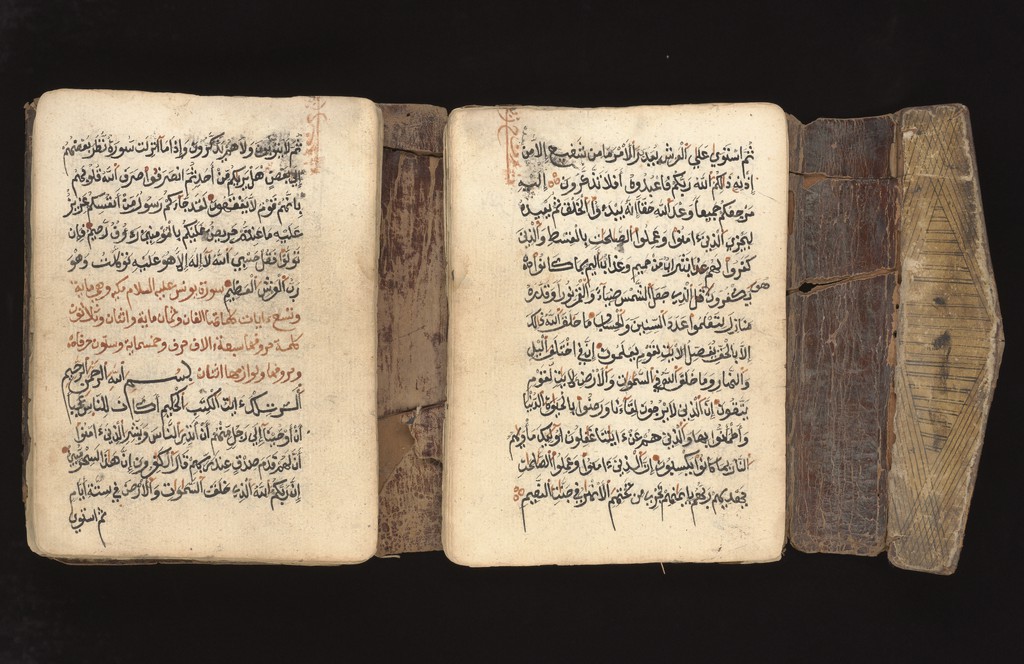 ثم لا يتوبون ولا هم يذكرون وإذا ما أنزلت سورة نظر بعضهم
إلى بعض هل يريكم من أحد ثم انصرفوا صرف الله قلوبهم
بأنهم قوم لا يفقهون لقد جاءكم رسول من أنفسكم عزيز
عليه ما عنتم حريص عليكم بالمومنين رءوف رحيم فإن
تولوا فقل حسبي الله لا إله إلا هو عليه توكلت وهو
رب العرش العظيم سورة يونس عليه السلام مكية وهي ماية
وتسع ءايات كلماتها الفان وثمان ماية واثنان وثلاثون
كلمة حروفها سبعة ءالاف حرف وخمسماية وستون حرفا
بسم الله الرحمن الرحيم
الر تلك ءايت الكتب الحكيم أكان للناس عجبا
أن أوحينا إلى رجل منهم أن أنذر الناس وبشر الذين ءامنوا
أن لهم قدم صدق عند ربهم قال الكفرون إن هذا لسحر مبين
إن ربكم الله الذي خلق السموت والأرض في ستة أيام
ثم استوى
ثم استوى على العرش يدبر الأمر ما من شفيع إلا من
بعد إذنه ذلكم الله ربكم فاعبدوه أفلا تذكرون إليه
مرجعكم جميعا وعد الله حقا إنه يبدؤا الخلق ثم يعيده
ليجزي الذين ءامنوا وعملوا الصلحت بالقسط والذين
كفروا لهم شراب من حميم وعذاب أليم بما كانوا
يكفرون هو الذي جعل الشمس ضياء والقمر نورا وقدره
منازل لتعلموا عدد السنين والحساب ما خلق الله ذلك
إلا بالحق نفصل الأيت لقوم يعلمون إن في اختلف اليل
والنهار وما خلق الله في السموت والأرض لأيت لقوم
يتقون إن الذين لا يرجون لقاءنا ورضوا بالحيوة الدنيا
واطمأنوا بها والذين هم عن ءايتنا غفلون أوليك مأويهم
النار بما كانوا يكسبون إن الذين ءامنوا وعملوا الصلحت
يهديهم ربهم بإيمنهم تجري من تحتهم الأنهر في جنت النعيم